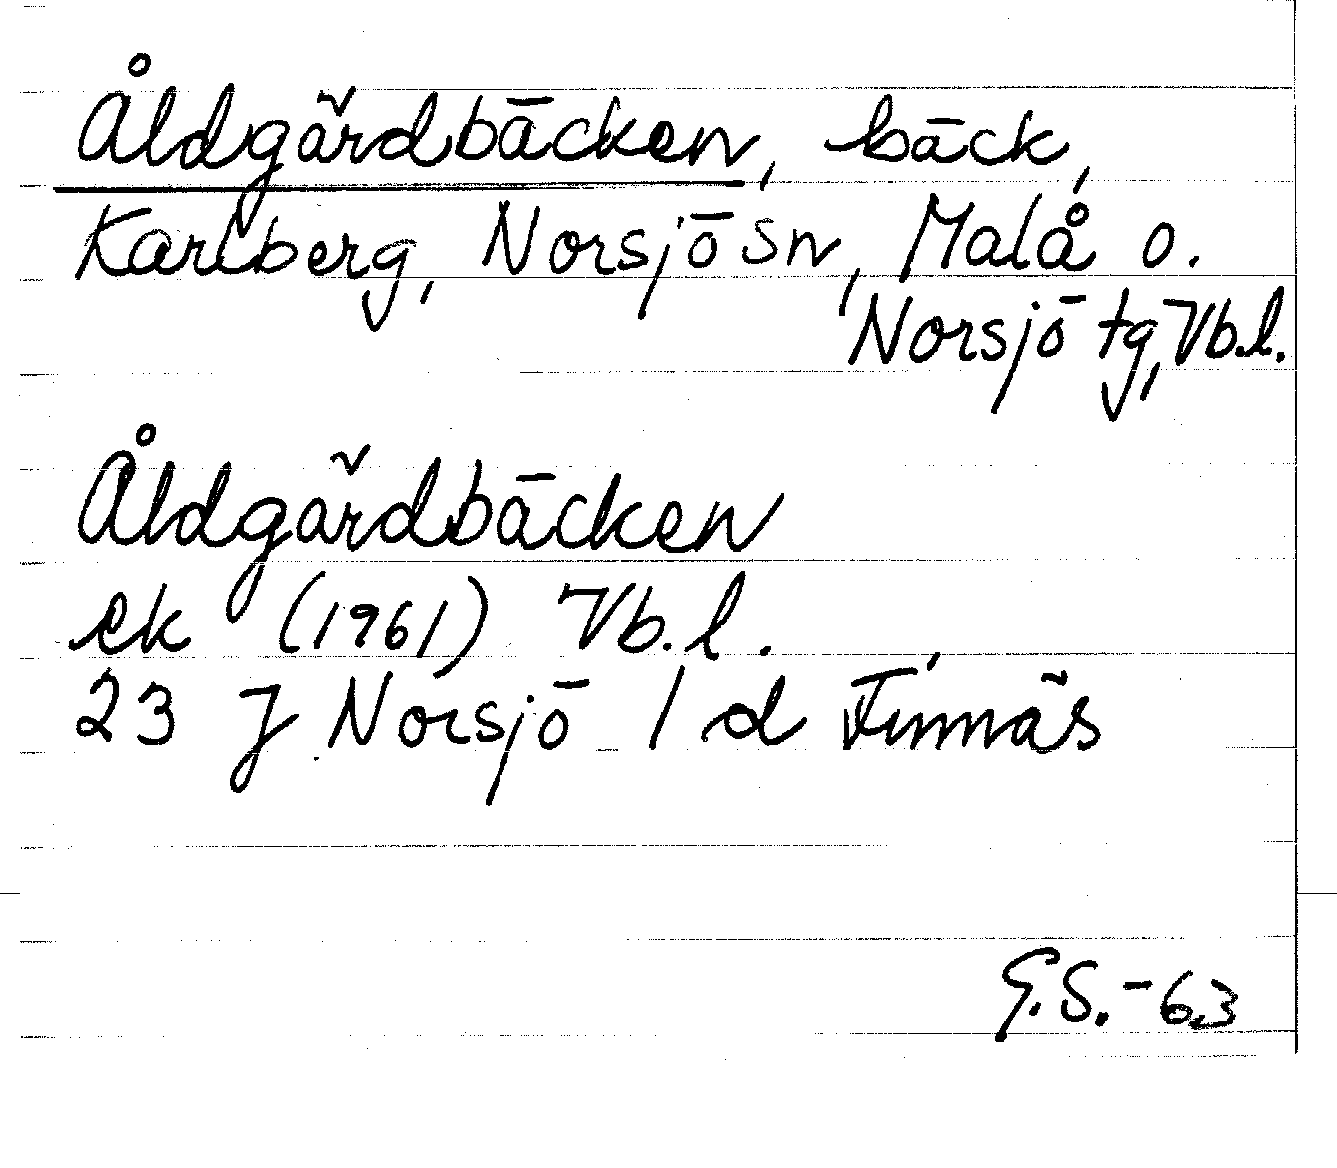 Åldgårdbäcken, bäck,
Karlberg, Norsjö sn, Malå o.
Norsjö tg, Vb.l.
Åldgårdbäcken
ek (1961) Vb.l.
23 J Norsjö 1 d Finnäs
G.S. -63